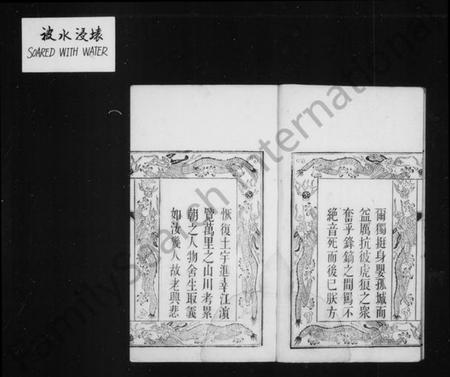 被水浸壊
SOARED WITH WATER
爾獨挺身嬰孤城而
益厲抗彼虎狼之衆
奮乎鋒鏑之間罵不
絕音死而後已朕方
恢復土宇進幸江濱
覽萬里之山川考累
朝之人物舍生取義
如汝幾人故老興悲
FamilySearch International